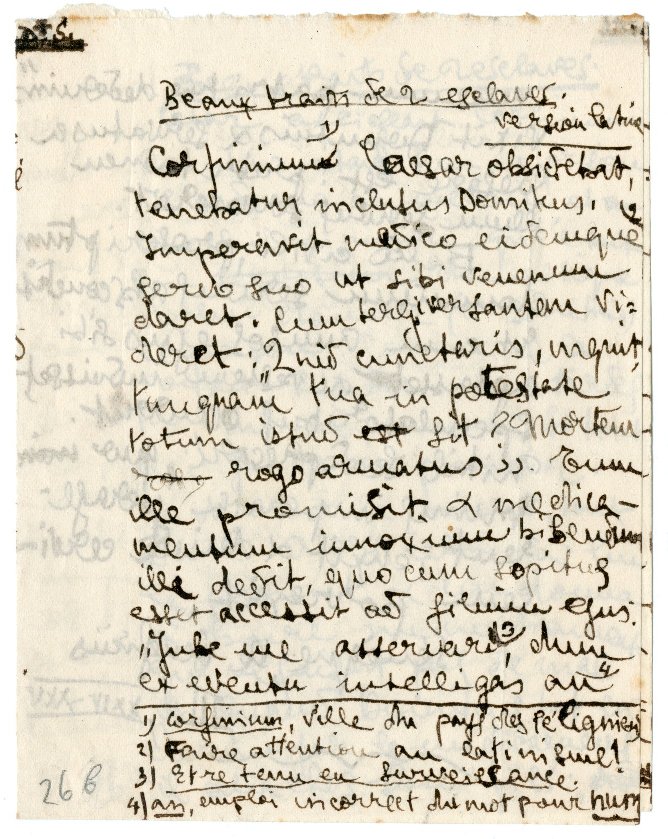 D. S.
Beaux traits de 2 esclaves
version latine
Corfinium 1) Caesar obsidebat,
tenebatur inclutus Domitius.
Imperavit medico eidemque
servo suo ut sibi venenum
daret. Cum tergiversantem vi=
deret : "Quid cunctaris, inquit,
tunquam tua in potestate
totum istud est sit ? Mortem
rogo armatus ». Tum
ille promisit & medica-
mentum innoxium bibendum
illi dedit, quo cum sopitus
esset accessit ad filium ejus.
"Jube me asservari 3), dum
ex eventu intelligas an 4
1) Corfinium, ville du pays des Péligniens
2) Faire attention au latinisme !
3) Etre tenu en surveillance.
4) an, emploi incorrect du mot pour num
26 b